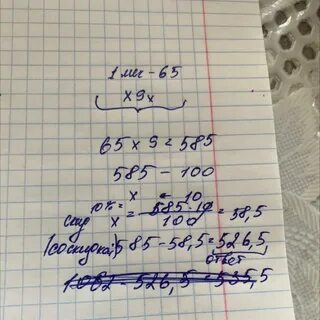 1 мин - 65
x 9x
65 x 9 = 585
585 - 100
x ← 10
скид 10% = x = 585 · 10 / 100 = 58,5
(со скидкой) 585 - 58,5 = 526,5
ответ
1062 - 526,5 = 535,5